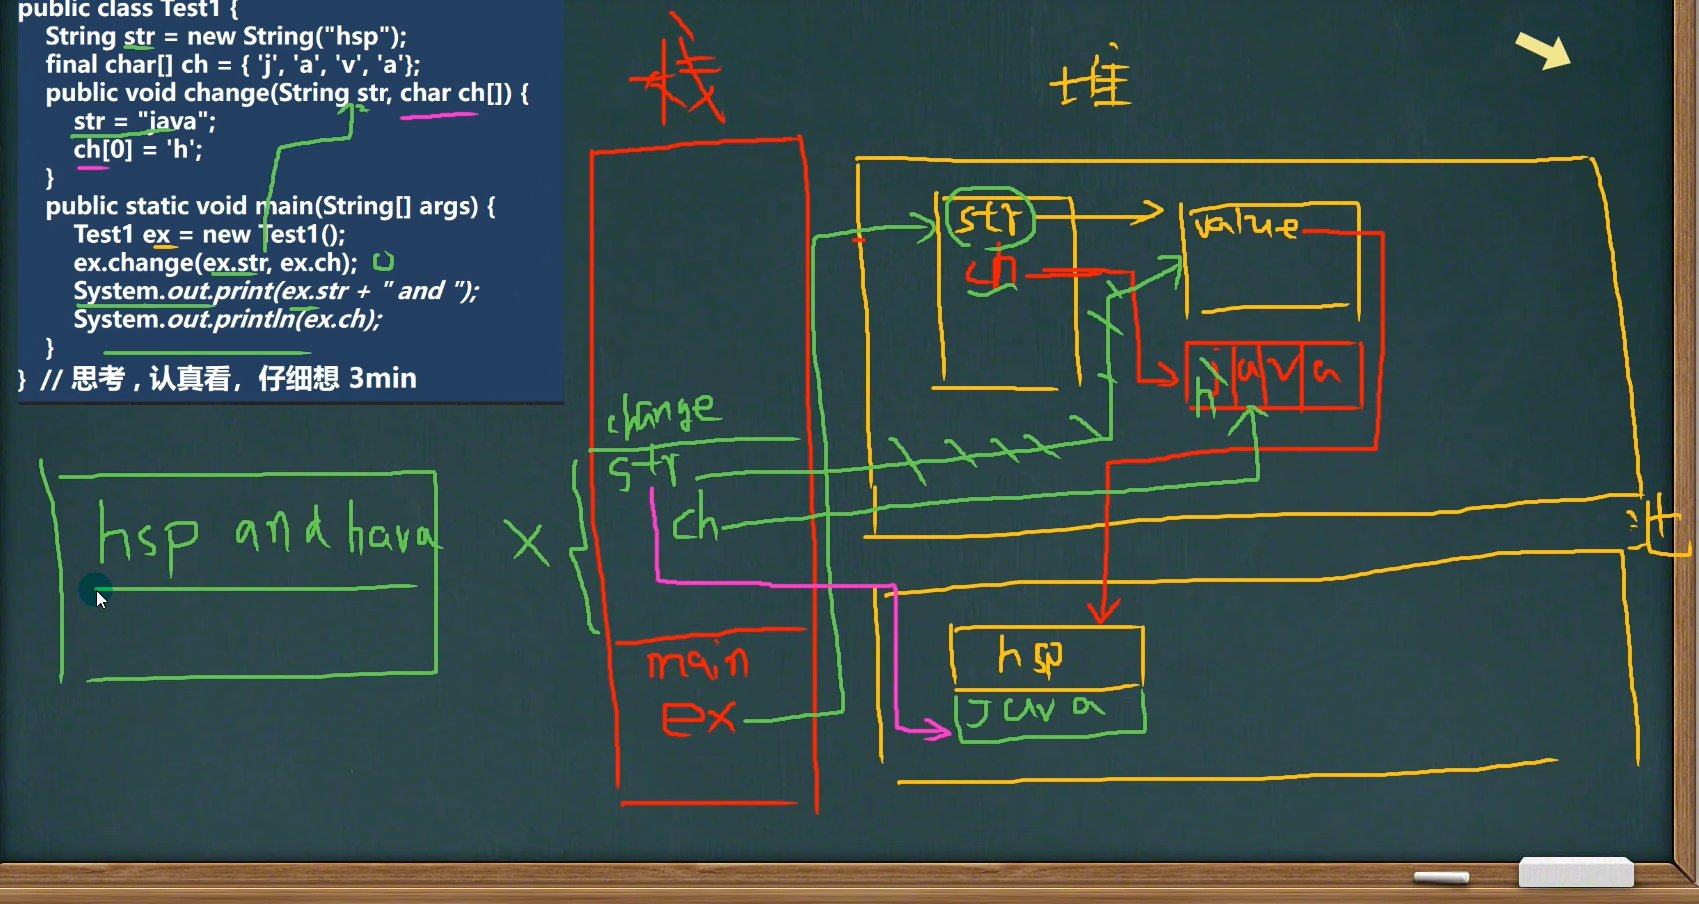 public class Test1 {
String str = new String("hsp");
final char[] ch = { 'j', 'a', 'v', 'a'};
public void change(String str, char ch[]) {
str = "java";
ch[0] = 'h';
}
public static void main(String[] args) {
Test1 ex = new Test1();
ex.change(ex.str, ex.ch);
System.out.print(ex.str + " and ");
System.out.println(ex.ch);
}
} // 思考，认真看，仔细想 3min
栈
堆
str
ch
value
j a v a
h
change
str
ch
main
ex
hsp
java
hsp and hava